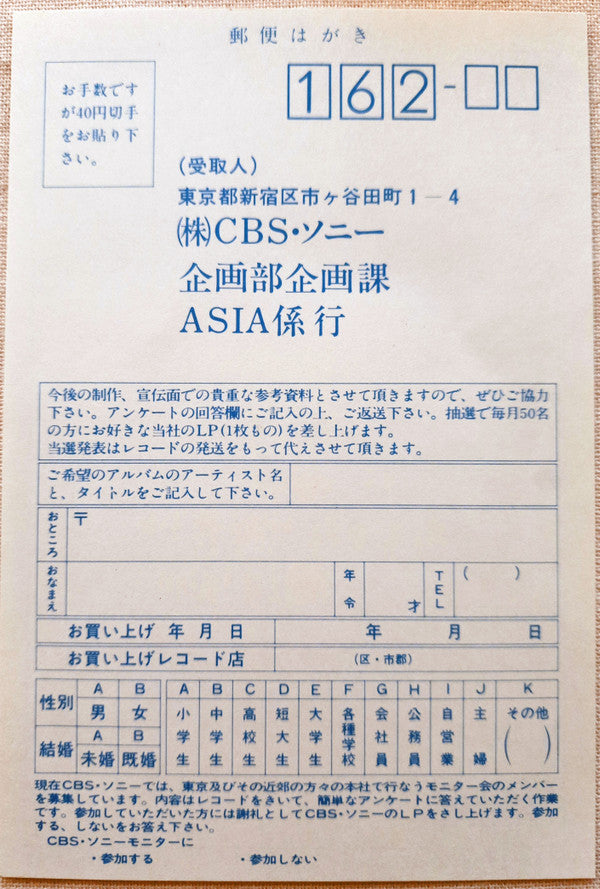 郵便はがき
お手数です
が40円切手
をお貼り下
さい。
162-
(受取人)
東京都新宿区市ヶ谷田町1―4
㈱CBS・ソニー
企画部企画課
ASIA係行
今後の制作、宣伝面での貴重な参考資料とさせて頂きますので、ぜひご協力
下さい。アンケートの回答欄にご記入の上、ご返送下さい。抽選で毎月50名
の方にお好きな当社のLP(1枚もの)を差し上げます。
当選発表はレコードの発送をもって代えさせて頂きます。
ご希望のアルバムのアーティスト名
と、タイトルをご記入して下さい。
おところ 〒
おなまえ 年令 才 TEL ( )
お買い上げ 年 月 日 年 月 日
お買い上げレコード店 (区・市郡)
性別 A 男 B 女
結婚 A 未婚 B 既婚
A 小学生 B 中学生 C 高校生 D 短大生 E 大学生 F 各種学校 G 会社員 H 公務員 I 自営業 J 主婦 K その他 ( )
現在CBS・ソニーでは、東京及びその近郊の方々の本社で行なうモニター会のメンバー
を募集しています。内容はレコードをきいて、簡単なアンケートに答えていただく作業
です。参加していただいた方には謝礼としてCBS・ソニーのLPをさし上げます。参加
する、しないをお答え下さい。
CBS・ソニーモニターに
・参加する ・参加しない